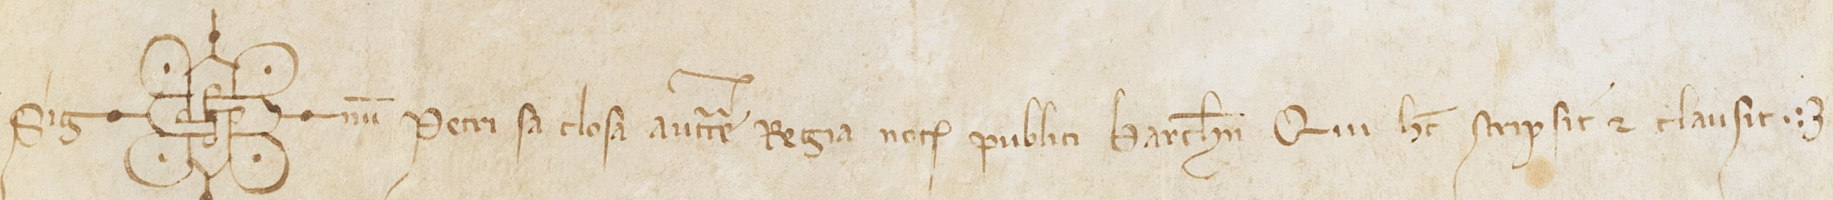 Sig num̅ Petri sa closa auctte̅ Regia not̅ publici barchn̅ Qui hc̅ scripsit ⁊ clausit